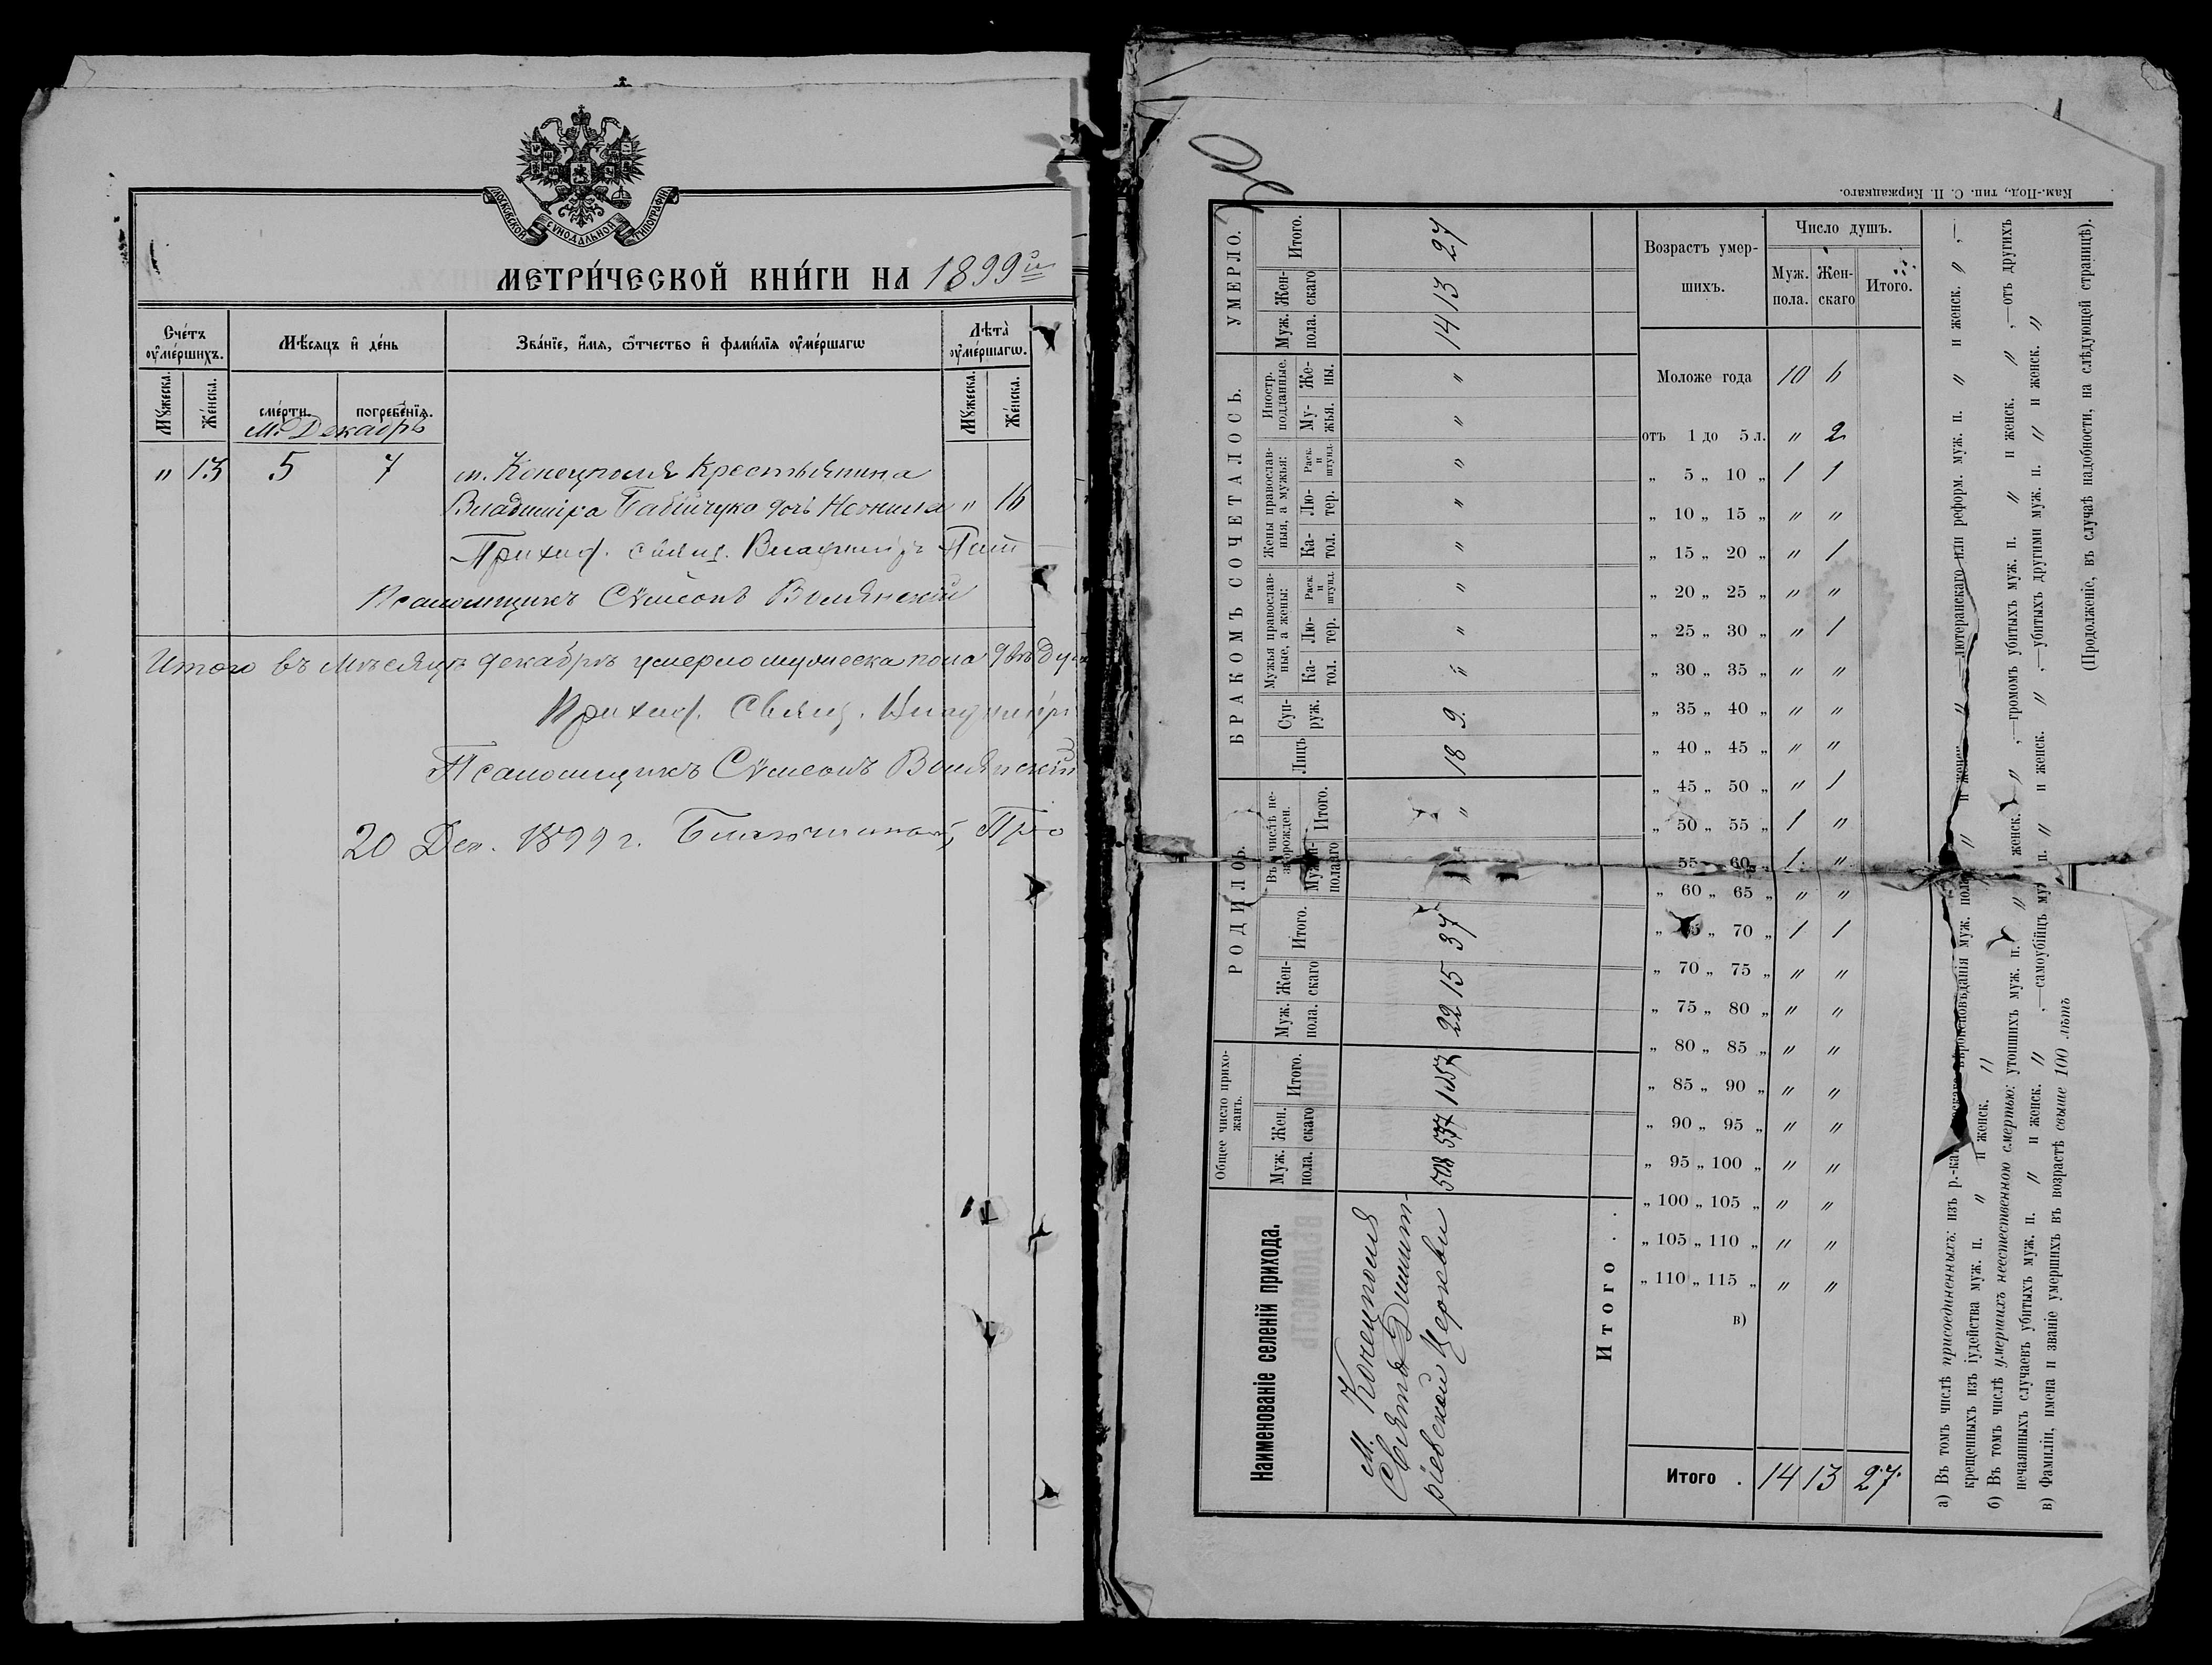 МОСКОВСКОЙ СѴНОДАЛЬНОЙ ТИПОГРАФІИ
МЕТРИ́ЧЕСКОЙ КНИ́ГИ НА 1899й
Сче́тъ ᲂу҆ме́ршихъ.
Мѣ́сяцъ и҆ де́нь
Зва́нїе, и҆́мя, ѻ҆́тчество и҆ фами́лїя ᲂу҆ме́ршагѡ
Лѣта̀ ᲂу҆ме́ршагѡ.
Мꙋ́жеска.
Же́нска.
сме́рти.
погребе́нїя.
Мꙋ́жеска.
Же́нска.
М. Декабрь
" 13 5 7 м. Конецполя Крестьянина
Владиміра дочь " 16
Приход. свящ. Владиміръ
Псаломщикъ Сѵмеонъ Волянскій
Итого въ Мѣсяцѣ декабрѣ умерло мужеска пола двѣ
Приход. Свящ. Владиміръ
Псаломщикъ Сѵмеонъ Волянскій
20 Дек. 1899 г.
Кам.-Под., тип. С. П. Киржацкаго.
Наименованіе селеній прихода.
Общее число прихожанъ.
Муж. пола.
Жен. скаго
Итого.
РОДИЛОСЬ.
Муж. пола.
Жен-скаго
Итого.
Въ числѣ не-законорожден.
Итого.
БРАКОМЪ СОЧЕТАЛОСЬ.
Лицъ
Суп-руж.
Мужья православ-ные, а жены:
Ка-тол.
Лю-тер.
Раск. и штунд.
Жены православ-ныя, а мужья:
Ка-тол.
Лю-тер.
Раск. и штунд.
Иностр. подданные.
Му-жья.
Же-ны.
УМЕРЛО.
Муж. пола.
Жен-скаго
Итого.
М. Конецполя
Свято Димит-
ріевской Церкви
22 15 37 " 18 9 " " " " " " " " 14 13 27
Итого . .
Возрастъ умер-шихъ.
Число душъ.
Муж. пола.
Жен-скаго
Итого.
Моложе года 10 6
отъ 1 до 5 л. " 2
„ 5 „ 10 „ 1 1
„ 10 „ 15 „ " "
„ 15 „ 20 „ " 1
„ 20 „ 25 „ " "
„ 25 „ 30 „ " 1
„ 30 „ 35 „ " "
„ 35 „ 40 „ " "
„ 40 „ 45 „ " "
„ 45 „ 50 „ " 1
„ 50 „ 55 „ 1 "
55 „ 60 „ 1 "
„ 60 „ 65 „ " "
„ 65 „ 70 „ 1 1
„ 70 „ 75 „ " "
„ 75 „ 80 „ " "
„ 80 „ 85 „ " "
„ 85 „ 90 „ " "
„ 90 „ 95 „ " "
„ 95 „ 100 „ " "
„ 100 „ 105 „ " "
„ 105 „ 110 „ " "
„ 110 „ 115 „ " "
в)
Итого . 14 13 27
а) Въ томъ числѣ присоединенныхъ: изъ вѣроисповѣданія муж. пола " и женск. " —лютеранскаго или реформ. муж. п. " и женск. " ,—
крещенныхъ изъ іудейства муж. п. " и женск. "
б) Въ томъ числѣ умершихъ неестественною смертью: утопшихъ муж. п. " женск. " ,—громомъ убитыхъ муж. п. " и женск. " ,—отъ другихъ
нечаянныхъ случаевъ убитыхъ муж. п. " и женск. " ,—самоубійцъ муж. п. " и женск. " ,—убитыхъ другими муж. п. " и женск. "
в) Фамиліи, имена и званіе умершихъ въ возрастѣ свыше 100 лѣтъ
(Продолженіе, въ случаѣ надобности, на слѣдующей страницѣ).